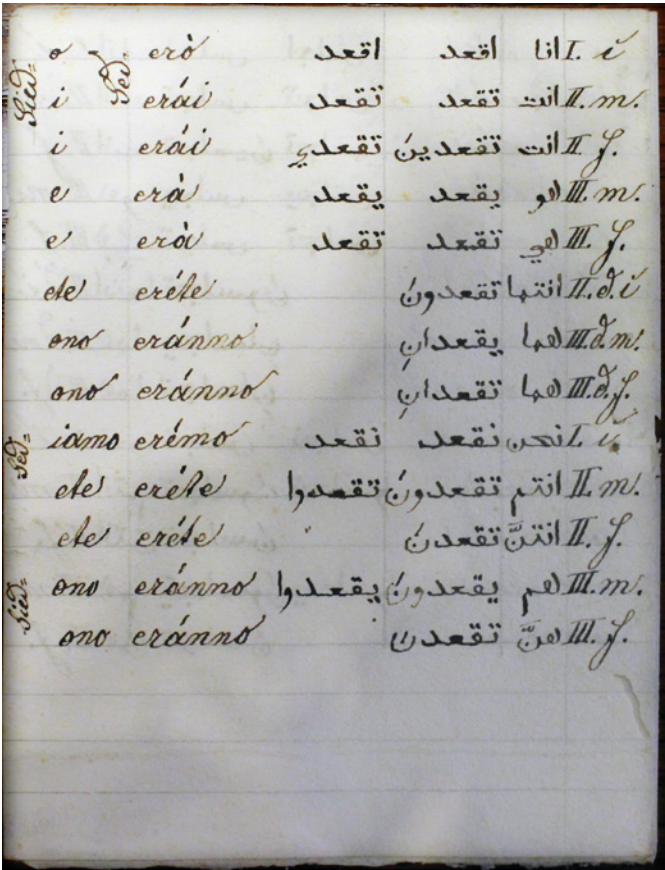 o erò اقعد اقعد انا I. i
i erái تقعد تقعد انت II. m.
i erái تقعدي تقعدين انت II f.
e erà يقعد يقعد هو III m.
e erà تقعد تقعد هي III. f.
ete eréte تقعدون انتما II. d. i
ono eránno يقعدانِ هما III d. m.
ono eránno تقعدانِ هما III d. f.
iamo erémo نقعد نقعد نحن I. i.
ete eréte تقعدوا تقعدونَ انتم II. m.
ete eréte تقعدنَ انتنَّ II. f.
ono eránno يقعدوا يقعدونَ هم III. m.
ono eránno تقعدنَ هنَّ III. f.
Sied=
Sed.
Sed=
Sied=